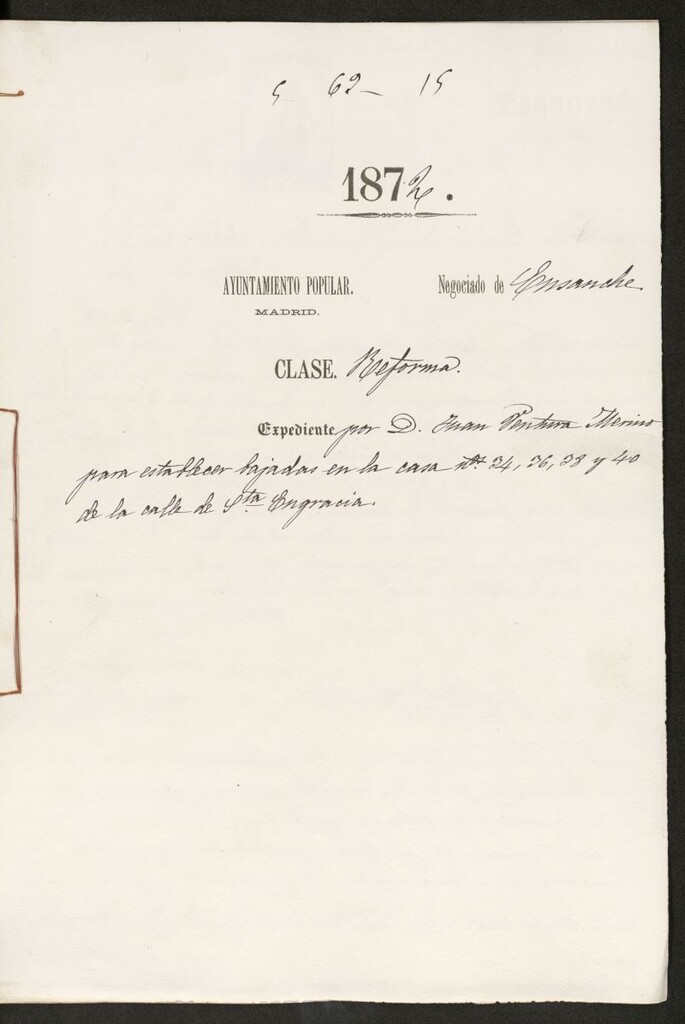 5 62- 15
1872.
AYUNTAMIENTO POPULAR. Negociado de Ensanche
MADRID.
CLASE. Reforma.
Expediente por D. Juan Ventura Merino
para establecer bajadas en la casa nos 34, 36, 38 y 40
de la calle de Sta Engracia.